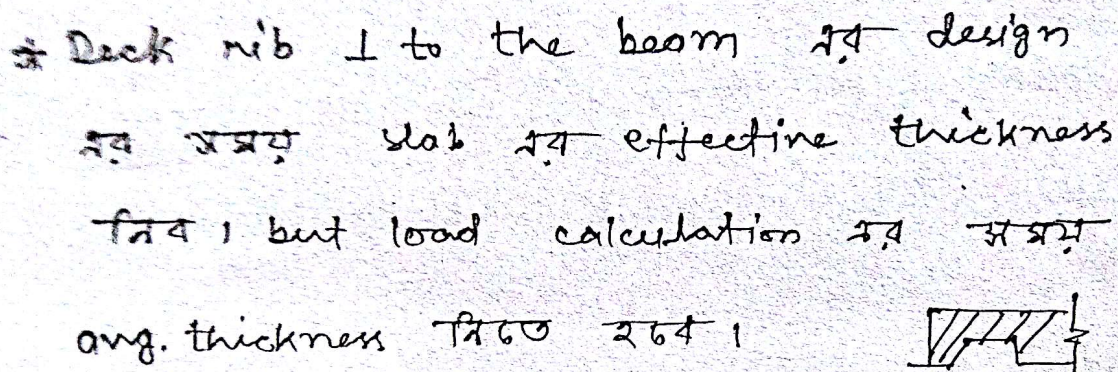 * Deck rib ⊥ to the beam এর design
এর সময় slab এর effective thickness
নিব। but load calculation এর সময়
avg. thickness নিতে হবে।